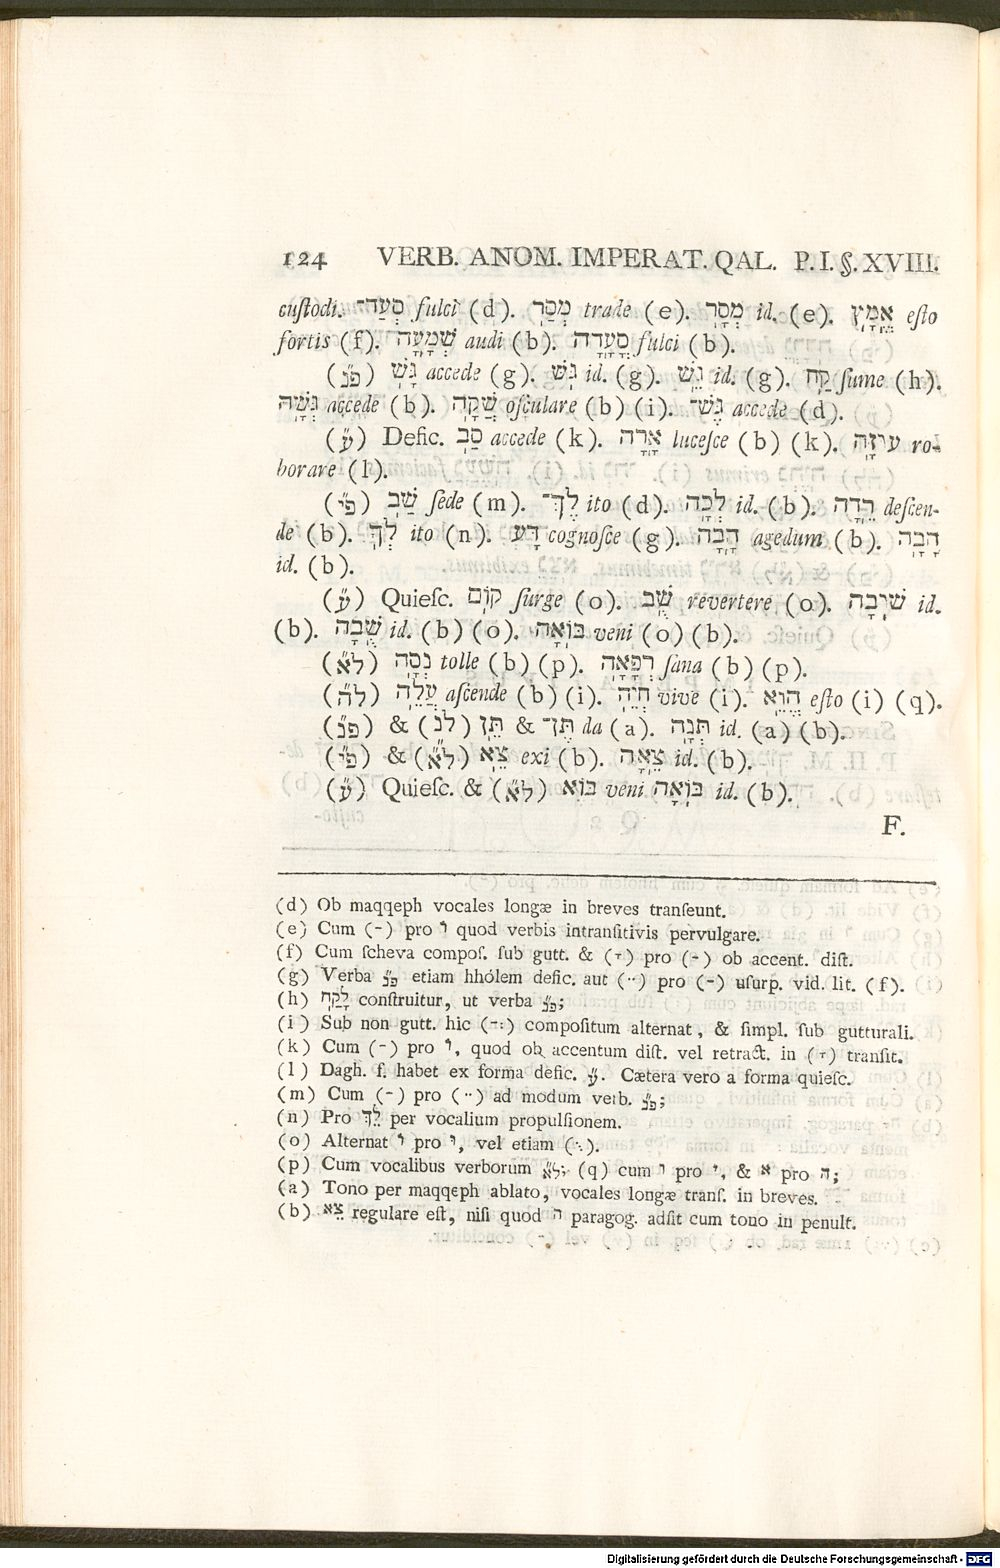 124 VERB. ANOM. IMPERAT. QAL. P. I. §. XVIII.
cuſtodi. סְעַד־ fulci (d). מְכַר trade (e). מְסַר id. (e). אֱמָץ eſto
fortis (f). שְׁמָעָה audi (b). סְעָדָה fulci (b).
(פ״נ) גַּשׁ accede (g). גֹּשׁ id. (g). גֵּשׁ id. (g). קַח ſume (h).
גְּשָׁה accede (b). שֲׁקָה oſculare (b) (i). גֶּשׁ־ accede (d).
(ע״ע) Defic. סַב accede (k). אָרָה luceſce (b) (k). עוּזָּה ro-
borare (l).
(פ״י) שַׁב ſede (m). לֶךְ־ ito (d). לְכָה id. (b). רֵדָה deſcen-
de (b). לְךָ ito (n). דָּע cognoſce (g). הָבָה agedum (b). הָבָה
id. (b).
(ע״ו) Quieſc. קוֹם ſurge (o). שֻׁב revertere (o). שׁוּבָה id.
(b). שֻׁבָה id. (b) (o). בּוֹאָה veni (o) (b).
(ל״א) נְסָה tolle (b) (p). רְפָאָה ſana (b) (p).
(ל״ה) עֲלֵה aſcende (b) (i). חְיֵה vive (i). הֱוֵא eſto (i) (q).
(פ״נ) & (ל״נ) תֵּן & תֶּן־ da (a). תְּנָה id. (a) (b).
(פ״י) & (ל״א) צֵא exi (b). צֵאָה id. (b).
(ע״ו) Quieſc. & (ל״א) בּוֹא veni בּוֹאָה id. (b).
F.
(d) Ob maqqeph vocales longæ in breves tranſeunt.
(e) Cum (-) pro וֹ quod verbis intranſitivis pervulgare.
(f) Cum ſcheva compoſ. ſub gutt. & (ָ) pro (-) ob accent. diſt.
(g) Verba פ״נ etiam hhólem defic. aut (··) pro (-) uſurp. vid. lit. (f).
(h) לָקַח conſtruitur, ut verba פ״נ;
(i) Sub non gutt. hic (-:) compoſitum alternat, & ſimpl. ſub gutturali.
(k) Cum (-) pro וֹ, quod ob accentum diſt. vel retract. in (ָ) tranſit.
(l) Dagh. f. habet ex forma defic. ע״ע. Cætera vero a forma quieſc.
(m) Cum (-) pro (··) ad modum verb. פ״נ;
(n) Pro לֵךְ per vocalium propulſionem.
(o) Alternat וֹ pro וּ, vel etiam (ֻ).
(p) Cum vocalibus verborum ל״א; (q) cum ו pro י, & א pro ה;
(a) Tono per maqqeph ablato, vocales longæ tranſ. in breves.
(b) צֵא regulare eſt, niſi quod ה paragog. adſit cum tono in penult.
Digitalisierung gefördert durch die Deutsche Forschungsgemeinschaft - DFG